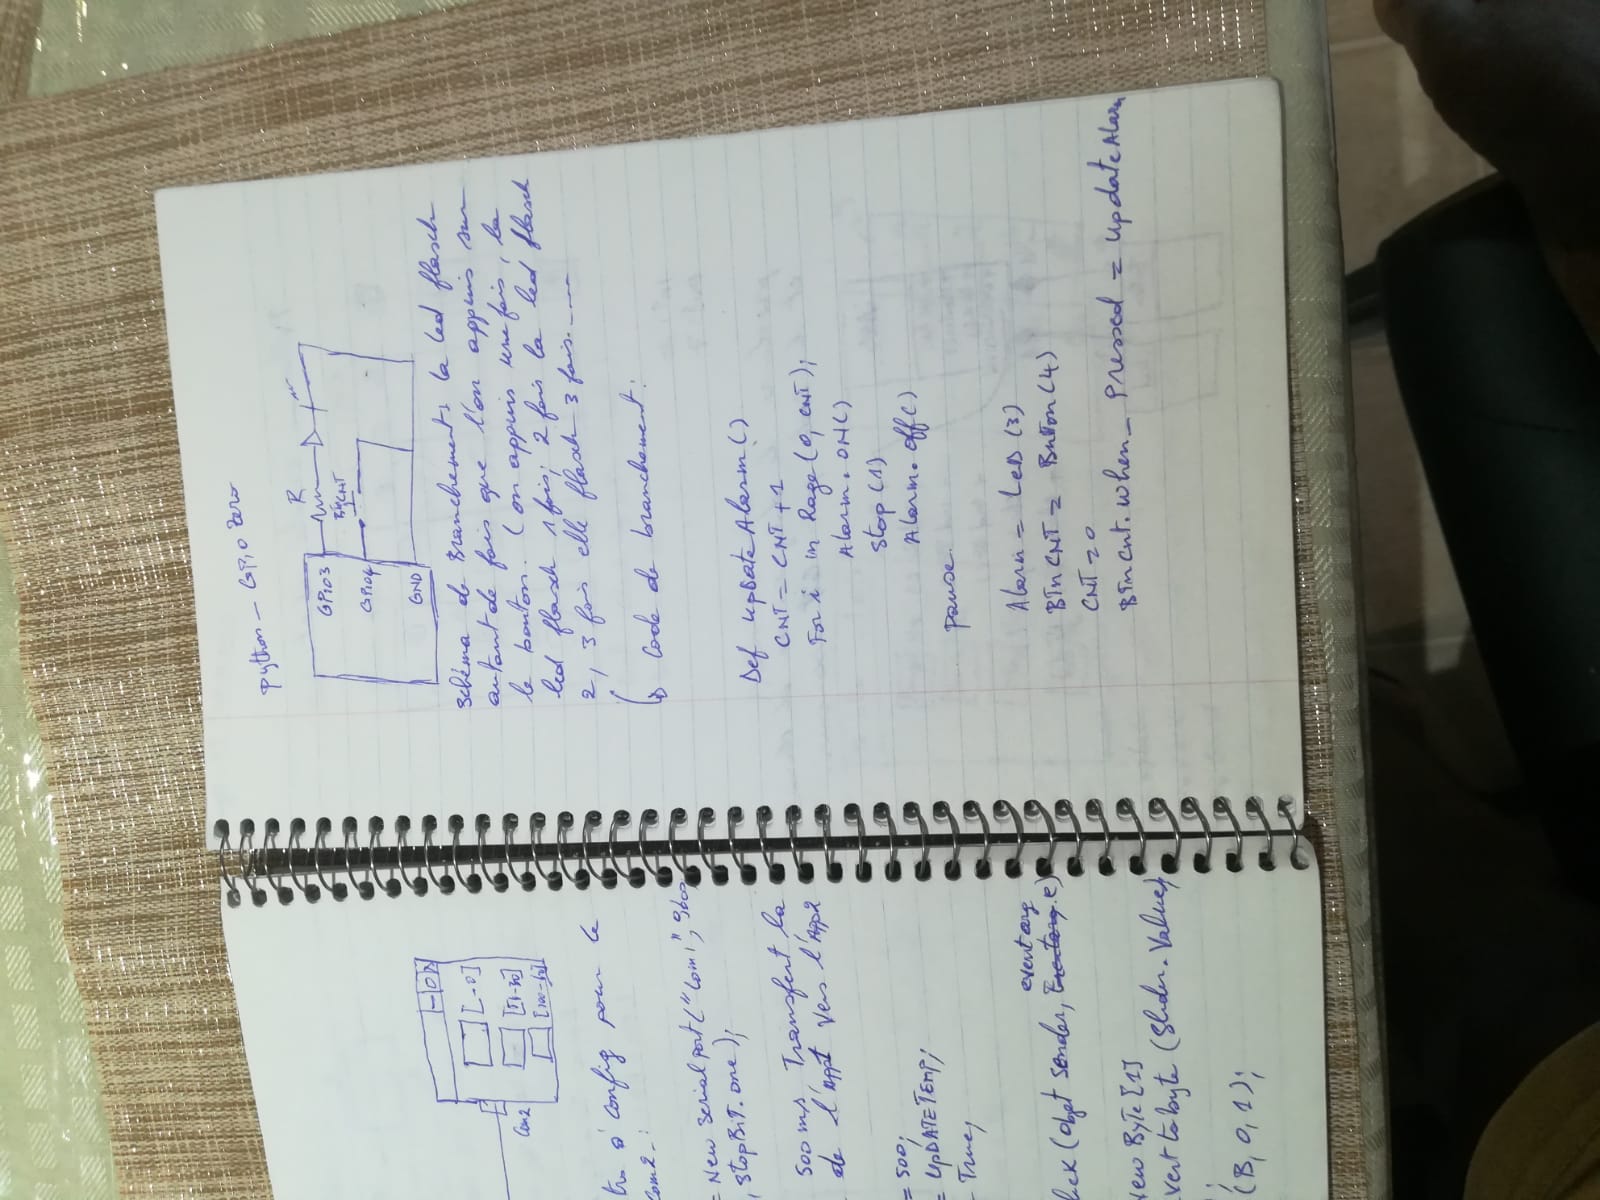 [-0]
[51-30]
Com2
[100-60]
à config pour le
Com2-:
= New Serialport("Com1", 9600
, StopBiT.one);
500 ms, Transfert la
de l'App1 vers l'App2
= 500;
= UpDATETEMP;
- True;
event arg
lick (Objet Sender, e)
New ByTe [1]
vert to byte (Slider.Value)
;
(B, 0, 1);
python - GPiO Zero
R
GPiO3
BTnCNT
GPiO4
GND
Schéma de Branchements la led flasch
autant de fois que l'on appuis sur
le bouton. (on appuis une fois, la
led flasch 1 fois; 2 fois la led flasch
2, 3 fois elle flasch 3 fois.----
Code de branchement:
Def UpDateAlarm()
CNT = CNT + 1
For i in Rage (0, CNT);
Alarm.ON()
Stop (1)
Alarm.off()
pause.
Alarm = LeD (3)
BTnCNT = BuTon(4)
CNT = 0
BTnCnt.When_Pressed = UpdateAlarm